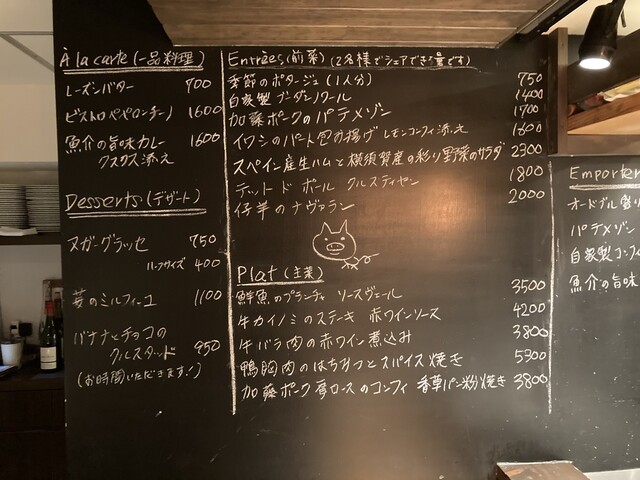 À la carte (一品料理)
レーズンバター 700
ビストロペペロンチーノ 1600
魚介の旨味カレー 1600
クスクス添え
Desserts (デザート)
ヌガーグラッセ 750
ハーフサイズ 400
苺のミルフィーユ 1100
バナナとチョコの
クルスタッド 950
(お時間いただきます!)
Entrées (前菜) (2名様でシェアできる量です)
季節のポタージュ (1人分) 750
自家製ブーダンノワール 1400
加藤ポークのパテメゾン 1700
イワシのパート包み揚げ レモンコンフィ添え 1600
スペイン産生ハムと横須賀産の彩り野菜のサラダ 2300
テット ド ポール クルスティヤン 1800
仔羊のナヴァラン 2000
Plat (主菜)
鮮魚のプランチャ ソースヴェール 3500
牛カイノミのステーキ 赤ワインソース 4200
牛バラ肉の赤ワイン煮込み 3800
鴨胸肉のはちみつとスパイス焼き 5300
加藤ポーク肩ロースのコンフィ 香草パン粉焼き 3800
Emporter
オードブル盛り
パテメゾン
自家製コンフィ
魚介の旨味